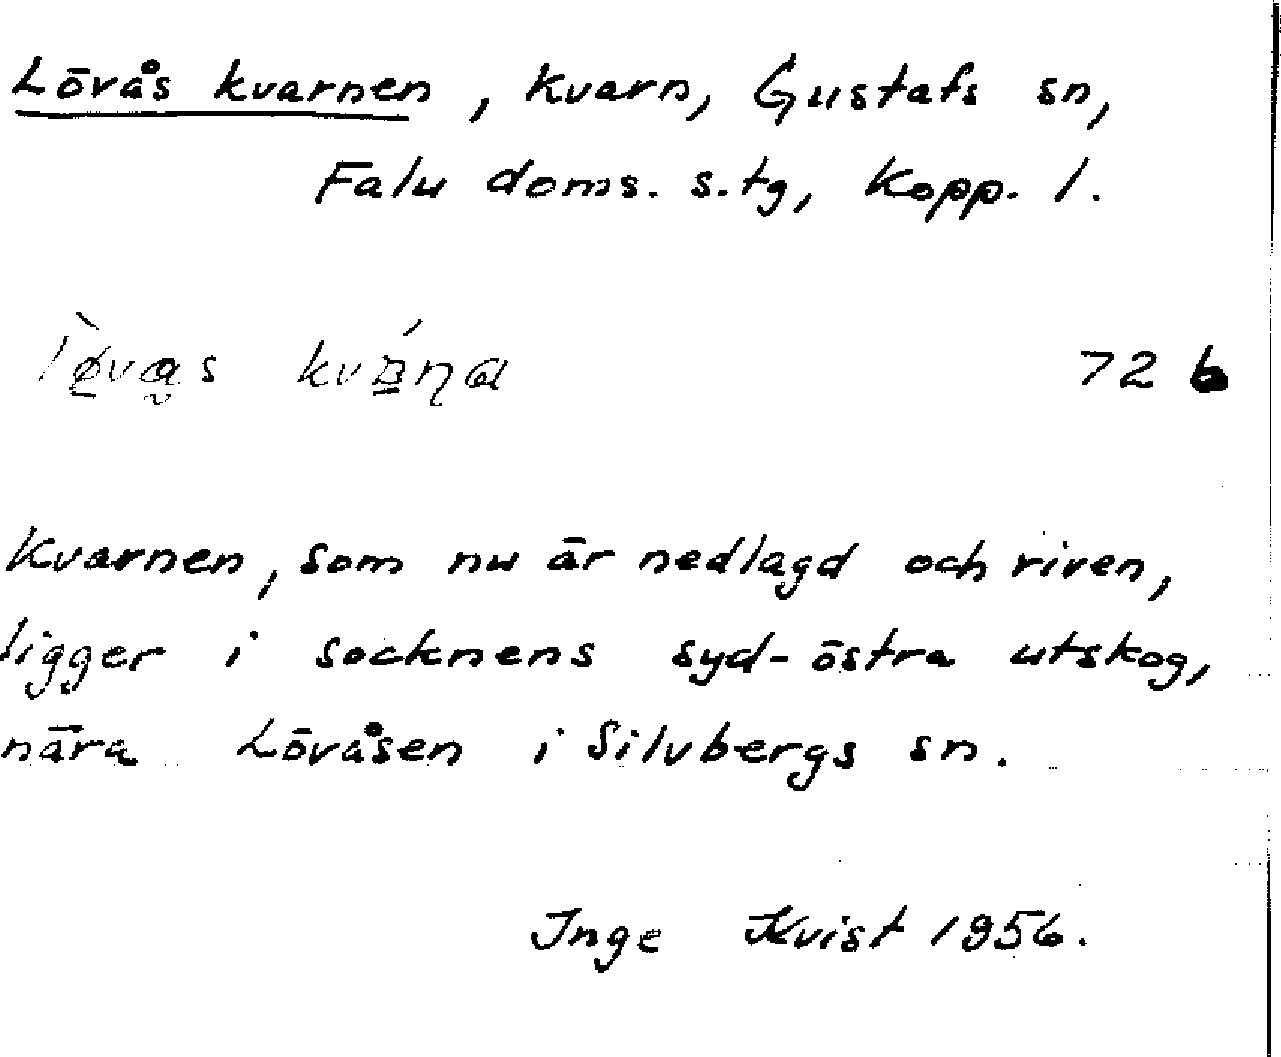 Lövås kvarnen, kvarn, Gustafs sn,
Falu doms. s.tg, Kopp. l.
72 b
Kvarnen, som nu är nedlagd och riven,
ligger i socknens syd-östra utskog,
nära Lövåsen i Silvbergs sn.
Inge Kvist 1956.